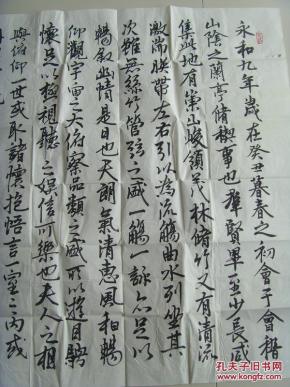 永和九年歲在癸丑暮春之初會于會稽
山陰之蘭亭脩禊事也群賢畢至少長咸
集此地有崇山峻領茂林脩竹又有清流
激湍暎帶左右引以為流觴曲水列坐其
次雖無絲竹管弦之盛一觴一詠亦足以
暢敘幽情是日也天朗氣清惠風和暢
仰觀宇宙之大俯察品類之盛所以遊目騁
懷足以極視聽之娛信可樂也夫人之相
與俯仰一世或取諸懷抱悟言一室之內或